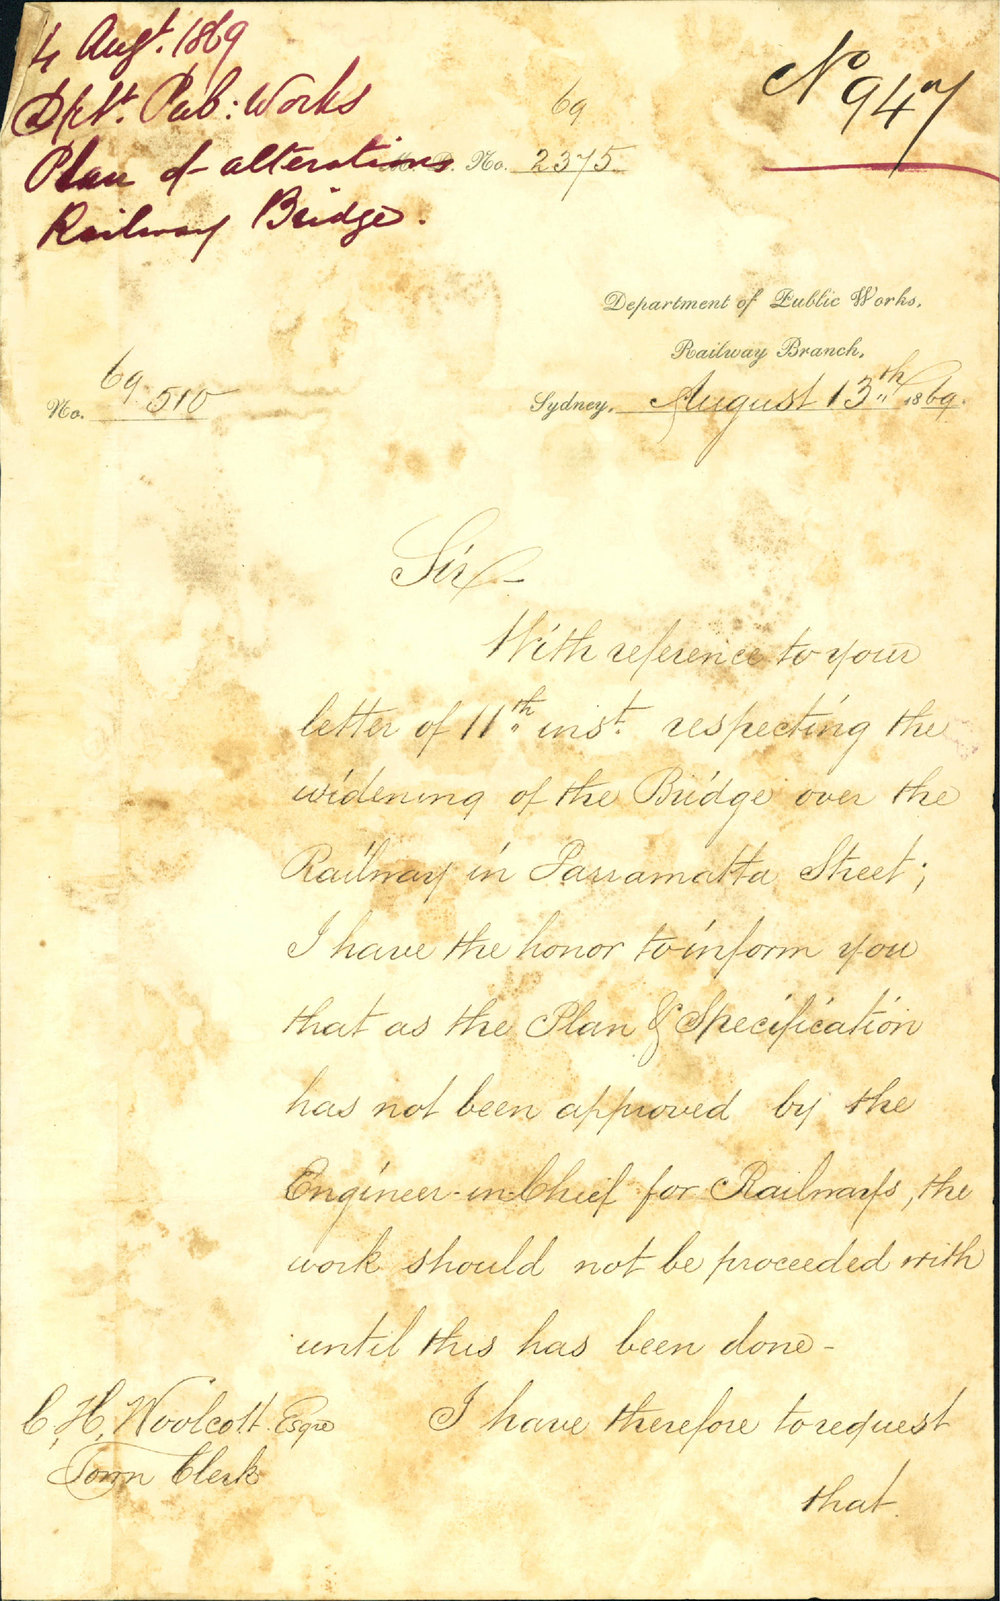 4 Augt. 1869
Dpt. Pub: Works
Plan of alterations
Railway Bridge.
No 947
69
No. 2375.
Department of Public Works,
Railway Branch,
No. 69.510
Sydney, August 13th 1869.
Sir,
With reference to your
letter of 11th inst. respecting the
widening of the Bridge over the
Railway in Parramatta Street;
I have the honor to inform you
that as the Plan & Specification
has not been approved by the
Engineer-in-Chief for Railways, the
work should not be proceeded with
until this has been done -
C, H, Woolcott. Esqre
I have therefore to request
Town Clerk
that.